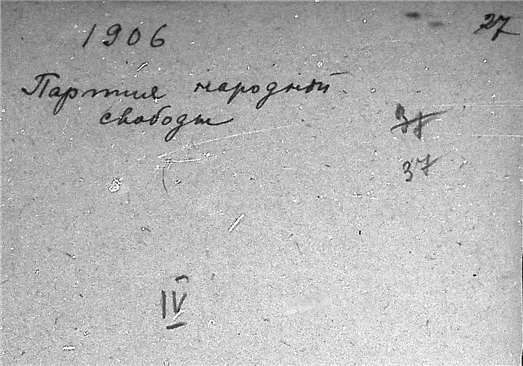 27
1906
Партия народной
свободы
37
IV